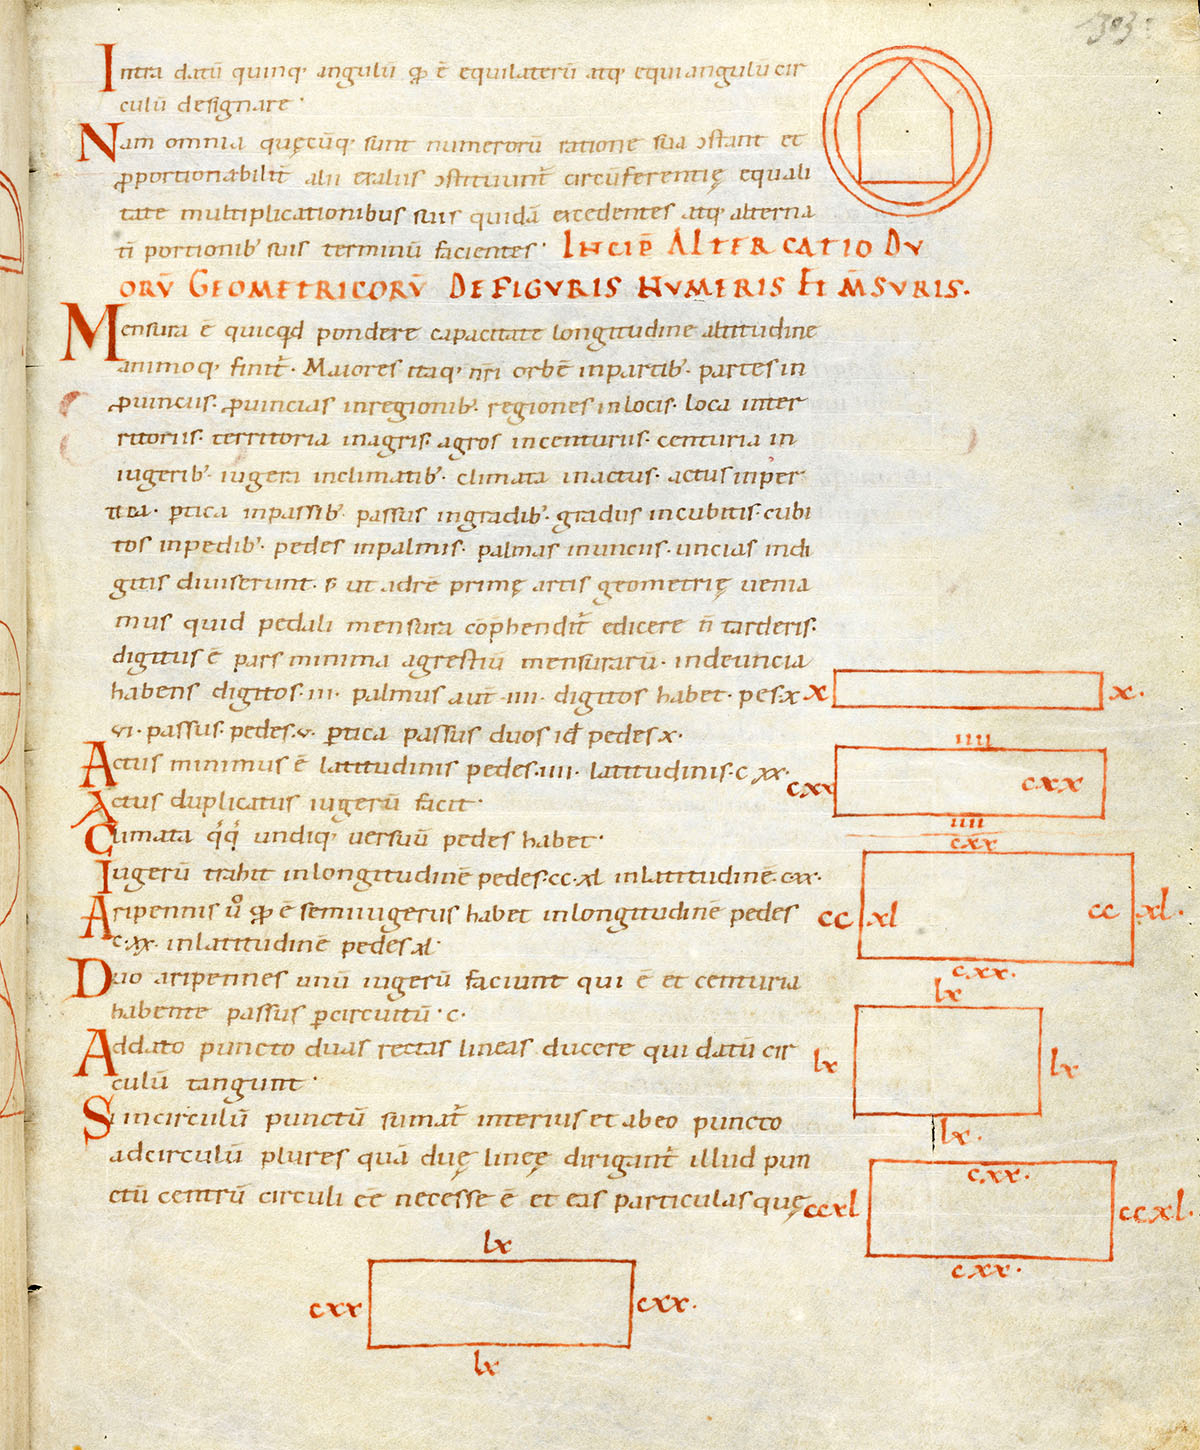 303
Intra datū quinq; angulū qđ ē equilaterū atq; equiangulū cir
culū designare·
Nam omnia quęcūq; sunt numerorū ratione sua ɔstant et
ꝓportionabilit̄ alii ex aliis ɔstituunt̄ circūferentię equali
tate multiplicationibus suis quidā excedentes atq; alterna
tī portionib; suis terminū facientes· INCIP̄ ALTERCATIO DV
ORV̄ GEOMETRICORV̄ DEFIGVRIS NVMERIS ET M̄SVRIS.
Mensura ē quicqd pondere capacitate longitudine altitudine
animoq; finit̄· Maiores itaq; nr̄i orbē inpartib;· partes in
ꝓuincus· ꝓuincias inregionib;· regiones inlocis· loca inter
ritoriis· territoria inagris· agros incenturiis· centuria in
iugerib;· iugera inclimatib;· climata inactus· actus inper
ticas· ꝑtica inpassib;· passus ingradib;· gradus incubitis· cubi
tos inpedib;· pedes inpalmis· palmas inuncus· uncias indi
gitis diuiserunt· ut adrē primę artis geometrię uenia
mus quid pedali mensura cōp̄hendit̄ edicere n̄ tarderis·
digitus ē pars minima agrestiū mensurarū· indeuncia
habens digitos·iii· palmus aut̄·iiii· digitos habet· pes·x
vi· passus· pedes·v· ꝑtica passus duos id pedes x·
Actus minimus ē latitudinis pedes·iiii· latitudinis·c xx·
Actus duplicatus iugerū facit·
Climata q̊q̊ undiq; uersuū pedes habet·
Iugerū trahit inlongitudinē pedes·cc·xl inlatitudinē·cxx·
Aripennis ů qđ ē semiiugerus habet inlongitudinē pedes
c·xx· inlatitudinē pedes xl·
Duo aripennes unū iugerū faciunt qui ē et centuria
habente passus ꝑcircuitū·c·
Addato puncto duas rectas lineas ducere qui datū cir
culū tangunt·
Si incirculū punctū sumat̄ interius et abeo puncto
adcirculū plures quā duę lineę dirigant̄ illud pun
ctū centrū circuli eē necesse ē et eas particulas quę
x x·
iiii
cxx cxx
iiii
cxx
cc xl cc xl·
c·xx·
lx
lx lx
lx·
cxx·
ccxl ccxl·
cxx·
lx
cxx cxx·
lx